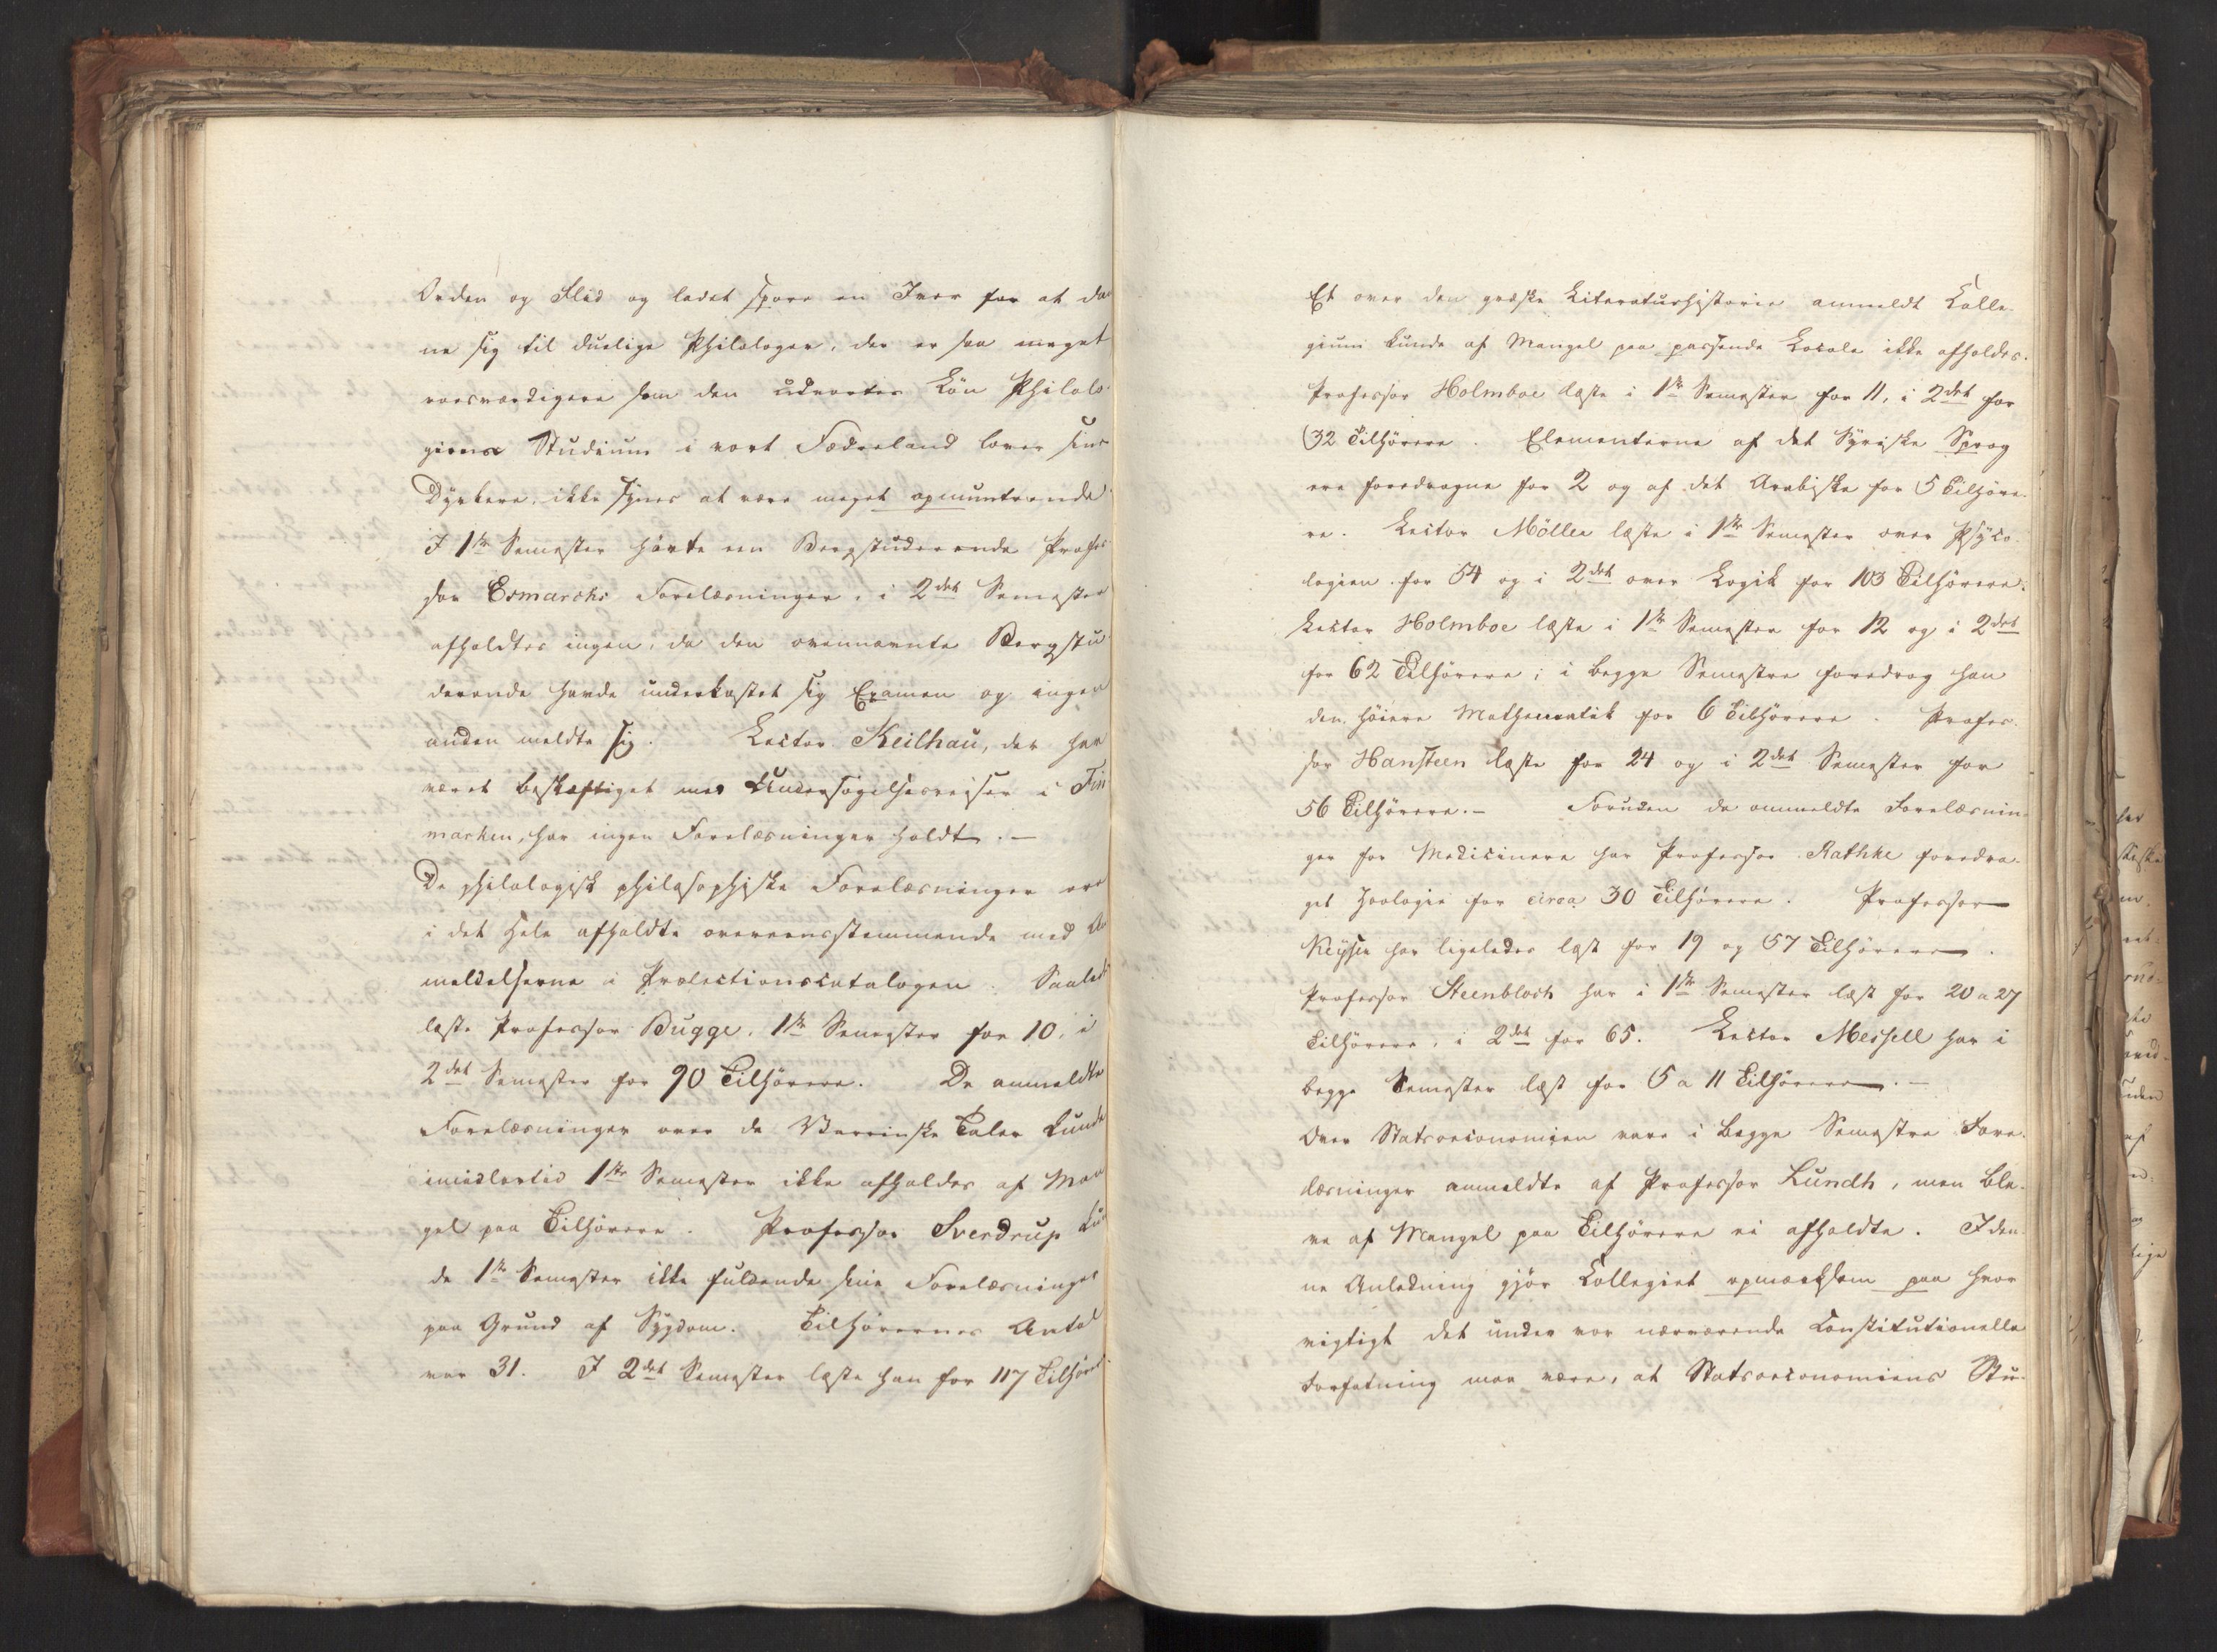 Orden og Flid og ladet spore en Iver for at dan
ne sig til duelige Philologer, der er saa meget
roesværdigere som den udvortes Løn Philolo-
giens Studium i vort Fædreland lover sine
Dyrkere, ikke synes at være meget opmuntrende.
I 1ste Semester hørte een Bergstuderende Profes-
sor Esmarchs Forelæsninger, i 2det Semester
afholdtes ingen, da den ovennævnte Bergstu-
derende havde underkastet sig Examen og ingen
anden meldte sig. Lector Keilhau, der har
været beskæftiget med Undersøgelsesreiser i Fin
marken, har ingen Forelæsninger holdt.—
De philologisk philosophiske Forelæsninger ere
i det Hele afholdte overeensstemmende med An
meldelserne i Prælectionscatalogen. Saaled
læste Professor Bugge, 1ste Semester for 10, i
2det Semester for 90 Tilhörere. De anmeldte
Forelæsninger over de Verrinske Taler kunde
imidlertid 1ste Semester ikke afholdes af Man
gel paa Tilhörere. Professor Sverdrup kun
de 1ste Semester ikke fuldende sine Forelæsninger
paa Grund af Sygdom. Tilhörernes Antal
var 31. I 2det Semester læste han for 117 Tilhörer
Et over den græske Literaturhistorie anmeldt Colle-
gium kunde af Mangel paa passende Locale ikke afholdes.
Professor Holmboe læste i 1ste Semester for 11, i 2det for
32 Tilhörere. Elementerne af det Syriske Sprog
ere foredragne for 2 og af det Arabiske for 5 Tilhöre-
re. Lector Möller læste i 1ste Semester over Psyco-
logien for 54 og i 2det over Logik for 103 Tilhörere.
Lector Holmboe læste i 1ste Semester for 12 og i 2det
for 62 Tilhörere; i begge Semestre foredrog han
den höiere Mathematik for 6 Tilhörere. Profes-
sor Hansteen læste for 24 og i 2det Semester for
56 Tilhörere.— Foruden de anmeldte Forelæsnin-
ger for Medicinere har Professor Rathke foredra-
get Zoologie for circa 30 Tilhörere. Professor
Keyser har ligeledes læst for 19 og 57 Tilhörere.
Professor Steenbloch har i 1ste Semester læst for 20 a 27
Tilhörere, i 2det for 65. Lector Messell har i
begge Semester læst for 5 a 11 Tilhörere.—
Over Statsoeconomien vare i begge Semestre Fore-
læsninger anmeldte af Professor Lundh, men ble-
ve af Mangel paa Tilhörere ei afholdte. I den-
ne Anledning gjør Collegiet opmærksom paa hvor
vigtigt det under vor nærværende Constitutionelle
Forfatning maa være, at Statsoeconomiens Stu-